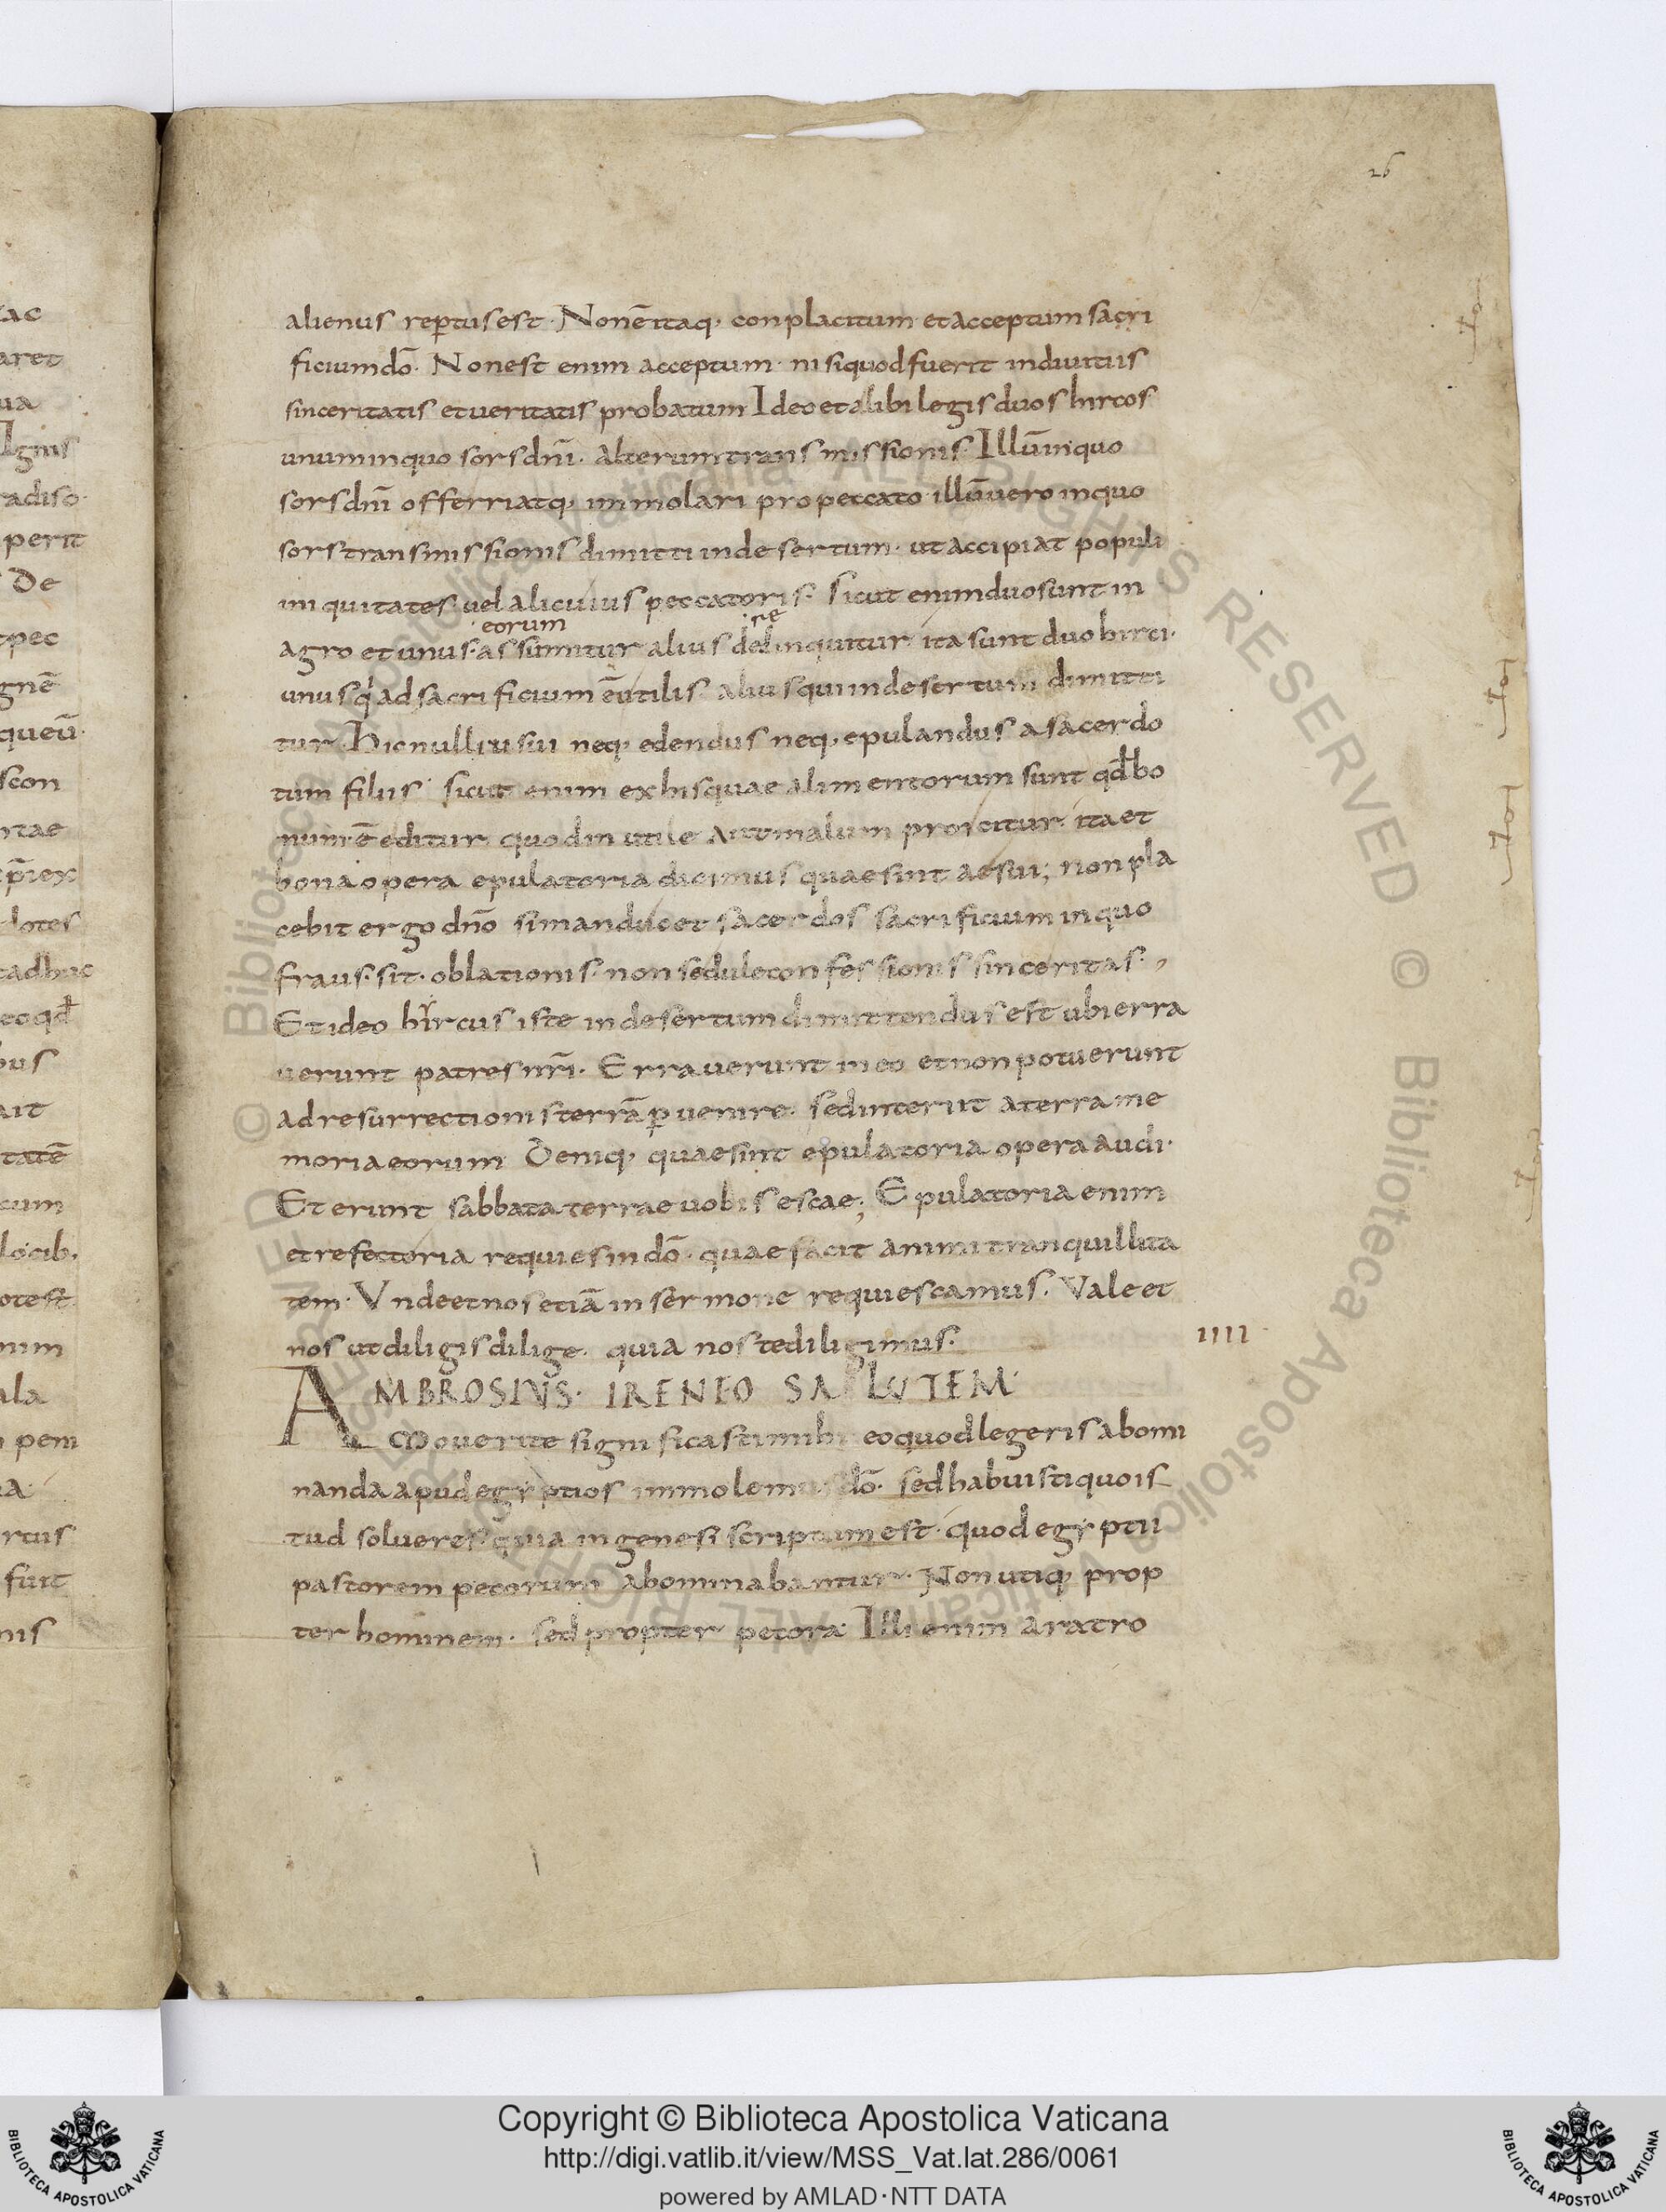 26
alienus repertus est. Non ē itaq; conplacitum et acceptum sacri
ficium dō. Non est enim acceptum nisi quod fuerit in diuitiis
sinceritatis et ueritatis probatum Ideo et alibi legis duos hircos
unum in quo sors dn̄i. alterum transmissionis. Illū in quo
sors dn̄i offerri atq; immolari pro peccato illū uero in quo
sors transmissionis dimitti in desertum. ut accipiat populi
iniquitates uel alicuius peccatoris. sicut enim duo sunt in
eorum re
agro et unus assumitur alius delinquitur ita sunt duo hirci.
unus qui ad sacrificium ē utilis alius qui in desertum dimitti
tur. Hic nulli usui neq; edendus neq; epulandus a sacerdo
tum filiis sicut enim ex his quae alimentorum sunt qđ bo
num ē editur quod inutile aut malum proicitur. ita et
bona opera epulatoria dicimus quae sint aesui; non pla
cebit ergo dn̄o si manducet sacerdos sacrificium in quo
fraus sit oblationis non sedule confessionis sinceritas.
Et ideo hircus iste in desertum dimittendus est ubi erra
uerunt patres nr̄i. Errauerunt in eo et non potuerunt
ad resurrectionis terrā ꝑuenire. sed interiit a terra me
moria eorum Deniq; quae sint epulatoria opera audi.
Et erunt sabbata terrae uobis escae; Epulatoria enim
et refectoria requies in dō. quae facit animi tranquillita
tem. Unde et nos etiā in sermone requiescamus. Vale et
nos ut diligis dilige. quia nos te diligimus.
IIII
AMBROSIVS. IRENEO SALUTEM
Mouerite significasti mihi eo quod legeris abomi
nanda apud egyptios immolemus dō. sed habuisti quo is
tud solueres quia in genesi scriptum est. quod egyptii
pastorem pecorum abominabantur. Non utiq; prop
ter hominem. sed propter pecora. Illi enim aratro
Copyright © Biblioteca Apostolica Vaticana
http://digi.vatlib.it/view/MSS_Vat.lat.286/0061
powered by AMLAD·NTT DATA